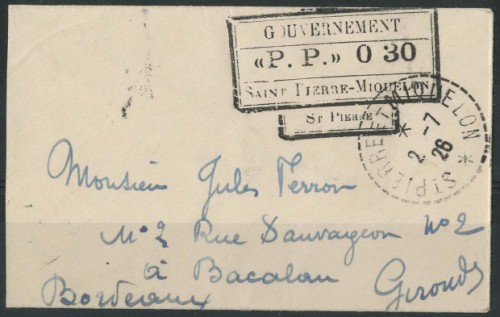 GOUVERNEMENT
«P. P.» 0 30
SAINT PIERRE-MIQUELON
ST PIERRE
ST PIERRE ET MIQUELON
2 -7
26
Monsieur Jules Perron
N° 2 Rue Dauvageon N° 2
à Bacalan
Bordeaux Gironde